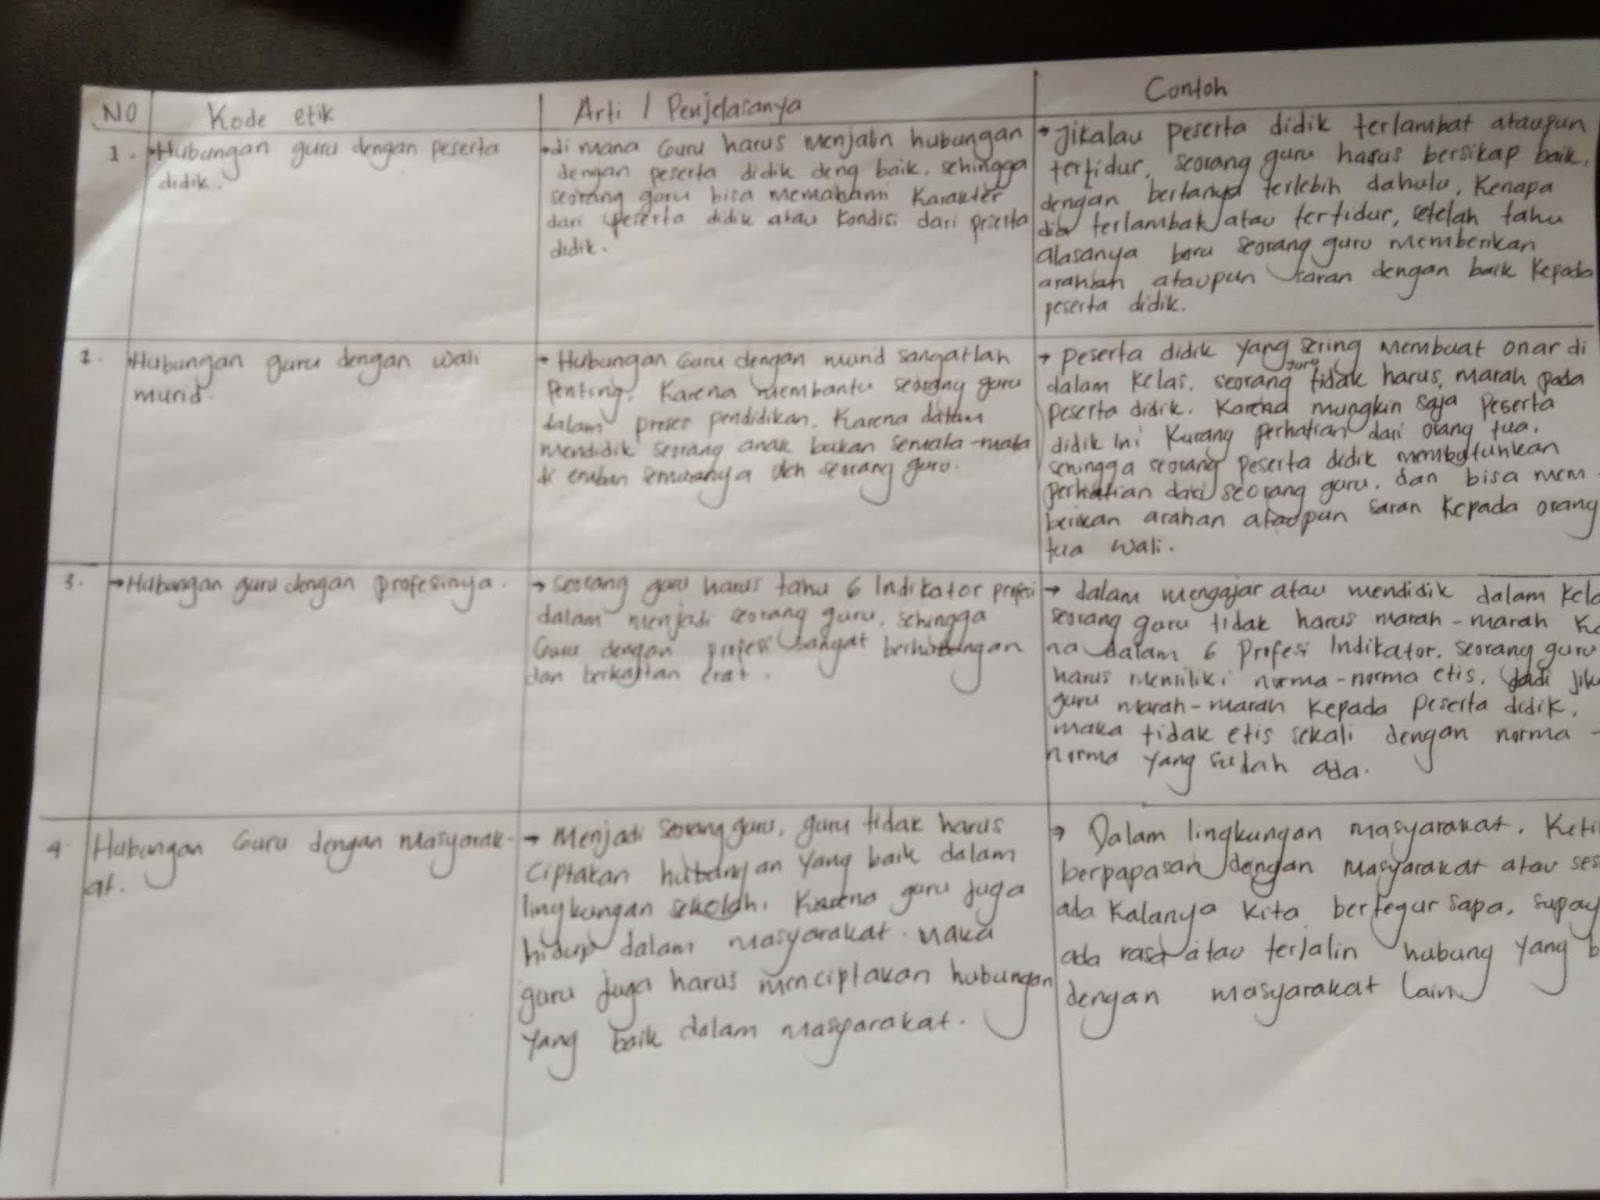 NO Kode etik Arti / Penjelasanya Contoh
1. Hubungan guru dengan peserta
didik.
di mana Guru harus menjalin hubungan
dengan peserta didik deng baik. sehingga
seorang guru bisa memahami Karakter
dari peserta didik atau Kondisi dari peserta
didik.
→ Jikalau peserta didik terlambat ataupun
tertidur, seorang guru harus bersikap baik,
dengan bertanya terlebih dahulu, Kenapa
dia terlambak atau tertidur, setelah tahu
alasanya baru seorang guru memberikan
arahan ataupun saran dengan baik Kepada
peserta didik.
2. Hubungan guru dengan wali
murid.
→ Hubungan Guru dengan murid sangatlah
Penting. Karena membantu seorang guru
dalam proses pendidikan. Karena dalam
mendidik seorang anak bukan semata-mata
di emban semuanya oleh seorang guru.
→ peserta didik yang sering membuat onar di
dalam Kelas. seorang guru tidak harus, marah pada
peserta didik. Karena mungkin saja peserta
didik ini Kurang perhatian dari orang tua.
sehingga seorang peserta didik membutuhkan
perhatian dari seorang guru. dan bisa mem-
berikan arahan ataupun saran Kepada orang
tua wali.
3. → Hubungan guru dengan profesinya.
→ Seorang guru harus tahu 6 Indikator profesi
dalam menjadi seorang guru, sehingga
Guru dengan profesi sangat berhubungan
dan berkaitan erat.
→ dalam mengajar atau mendidik dalam Kela
seorang guru tidak harus marah-marah Ka
na dalam 6 Profesi Indikator. seorang guru
harus memiliki norma-norma etis. Jadi jik
guru marah-marah Kepada peserta didik.
maka tidak etis sekali dengan norma-
norma yang sudah ada.
4 Hubungan Guru dengan Masyarak-
at.
→ Menjadi seorang guru, guru tidak harus
Ciptakan hubungan yang baik dalam
lingkungan sekolah. Karena guru juga
hidup dalam masyarakat. maka
guru juga harus menciptakan hubungan
yang baik dalam masyarakat.
→ Dalam lingkungan masyarakat. Keti
berpapasan dengan masyarakat atau ses
ada Kalanya Kita bertegur sapa, supay
ada rasa atau terjalin hubung yang b
dengan masyarakat lain